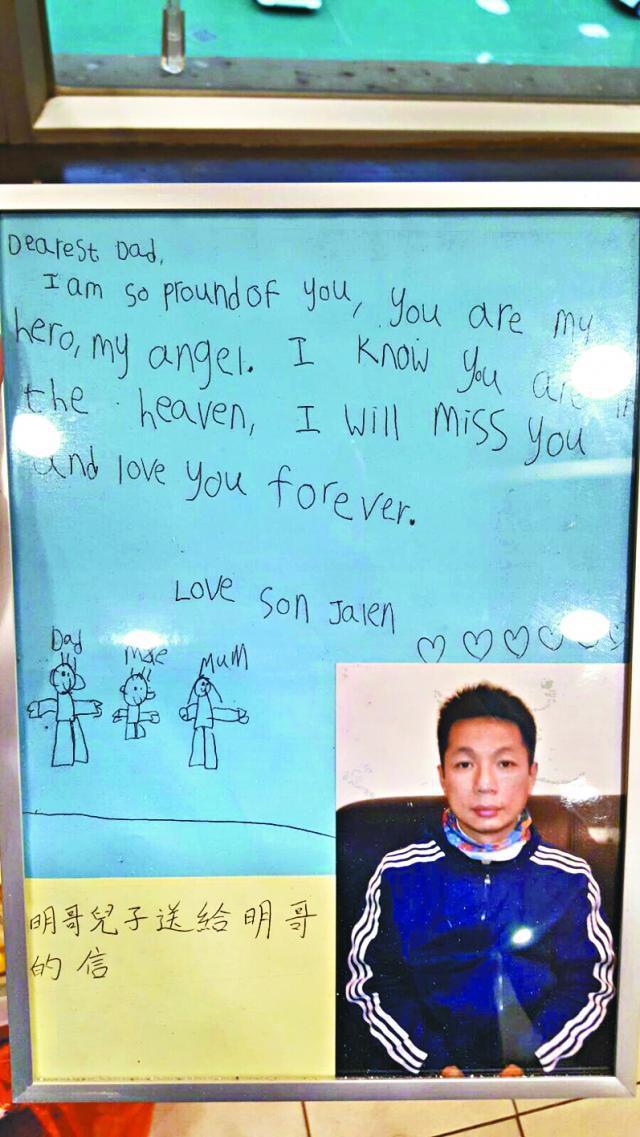 Dearest Dad,
I am so pround of you, you are my
hero, my angel. I know you are in
the heaven, I will miss you
and love you forever.
Love son Jalen
Dad Mum
明哥兒子送給明哥
的信